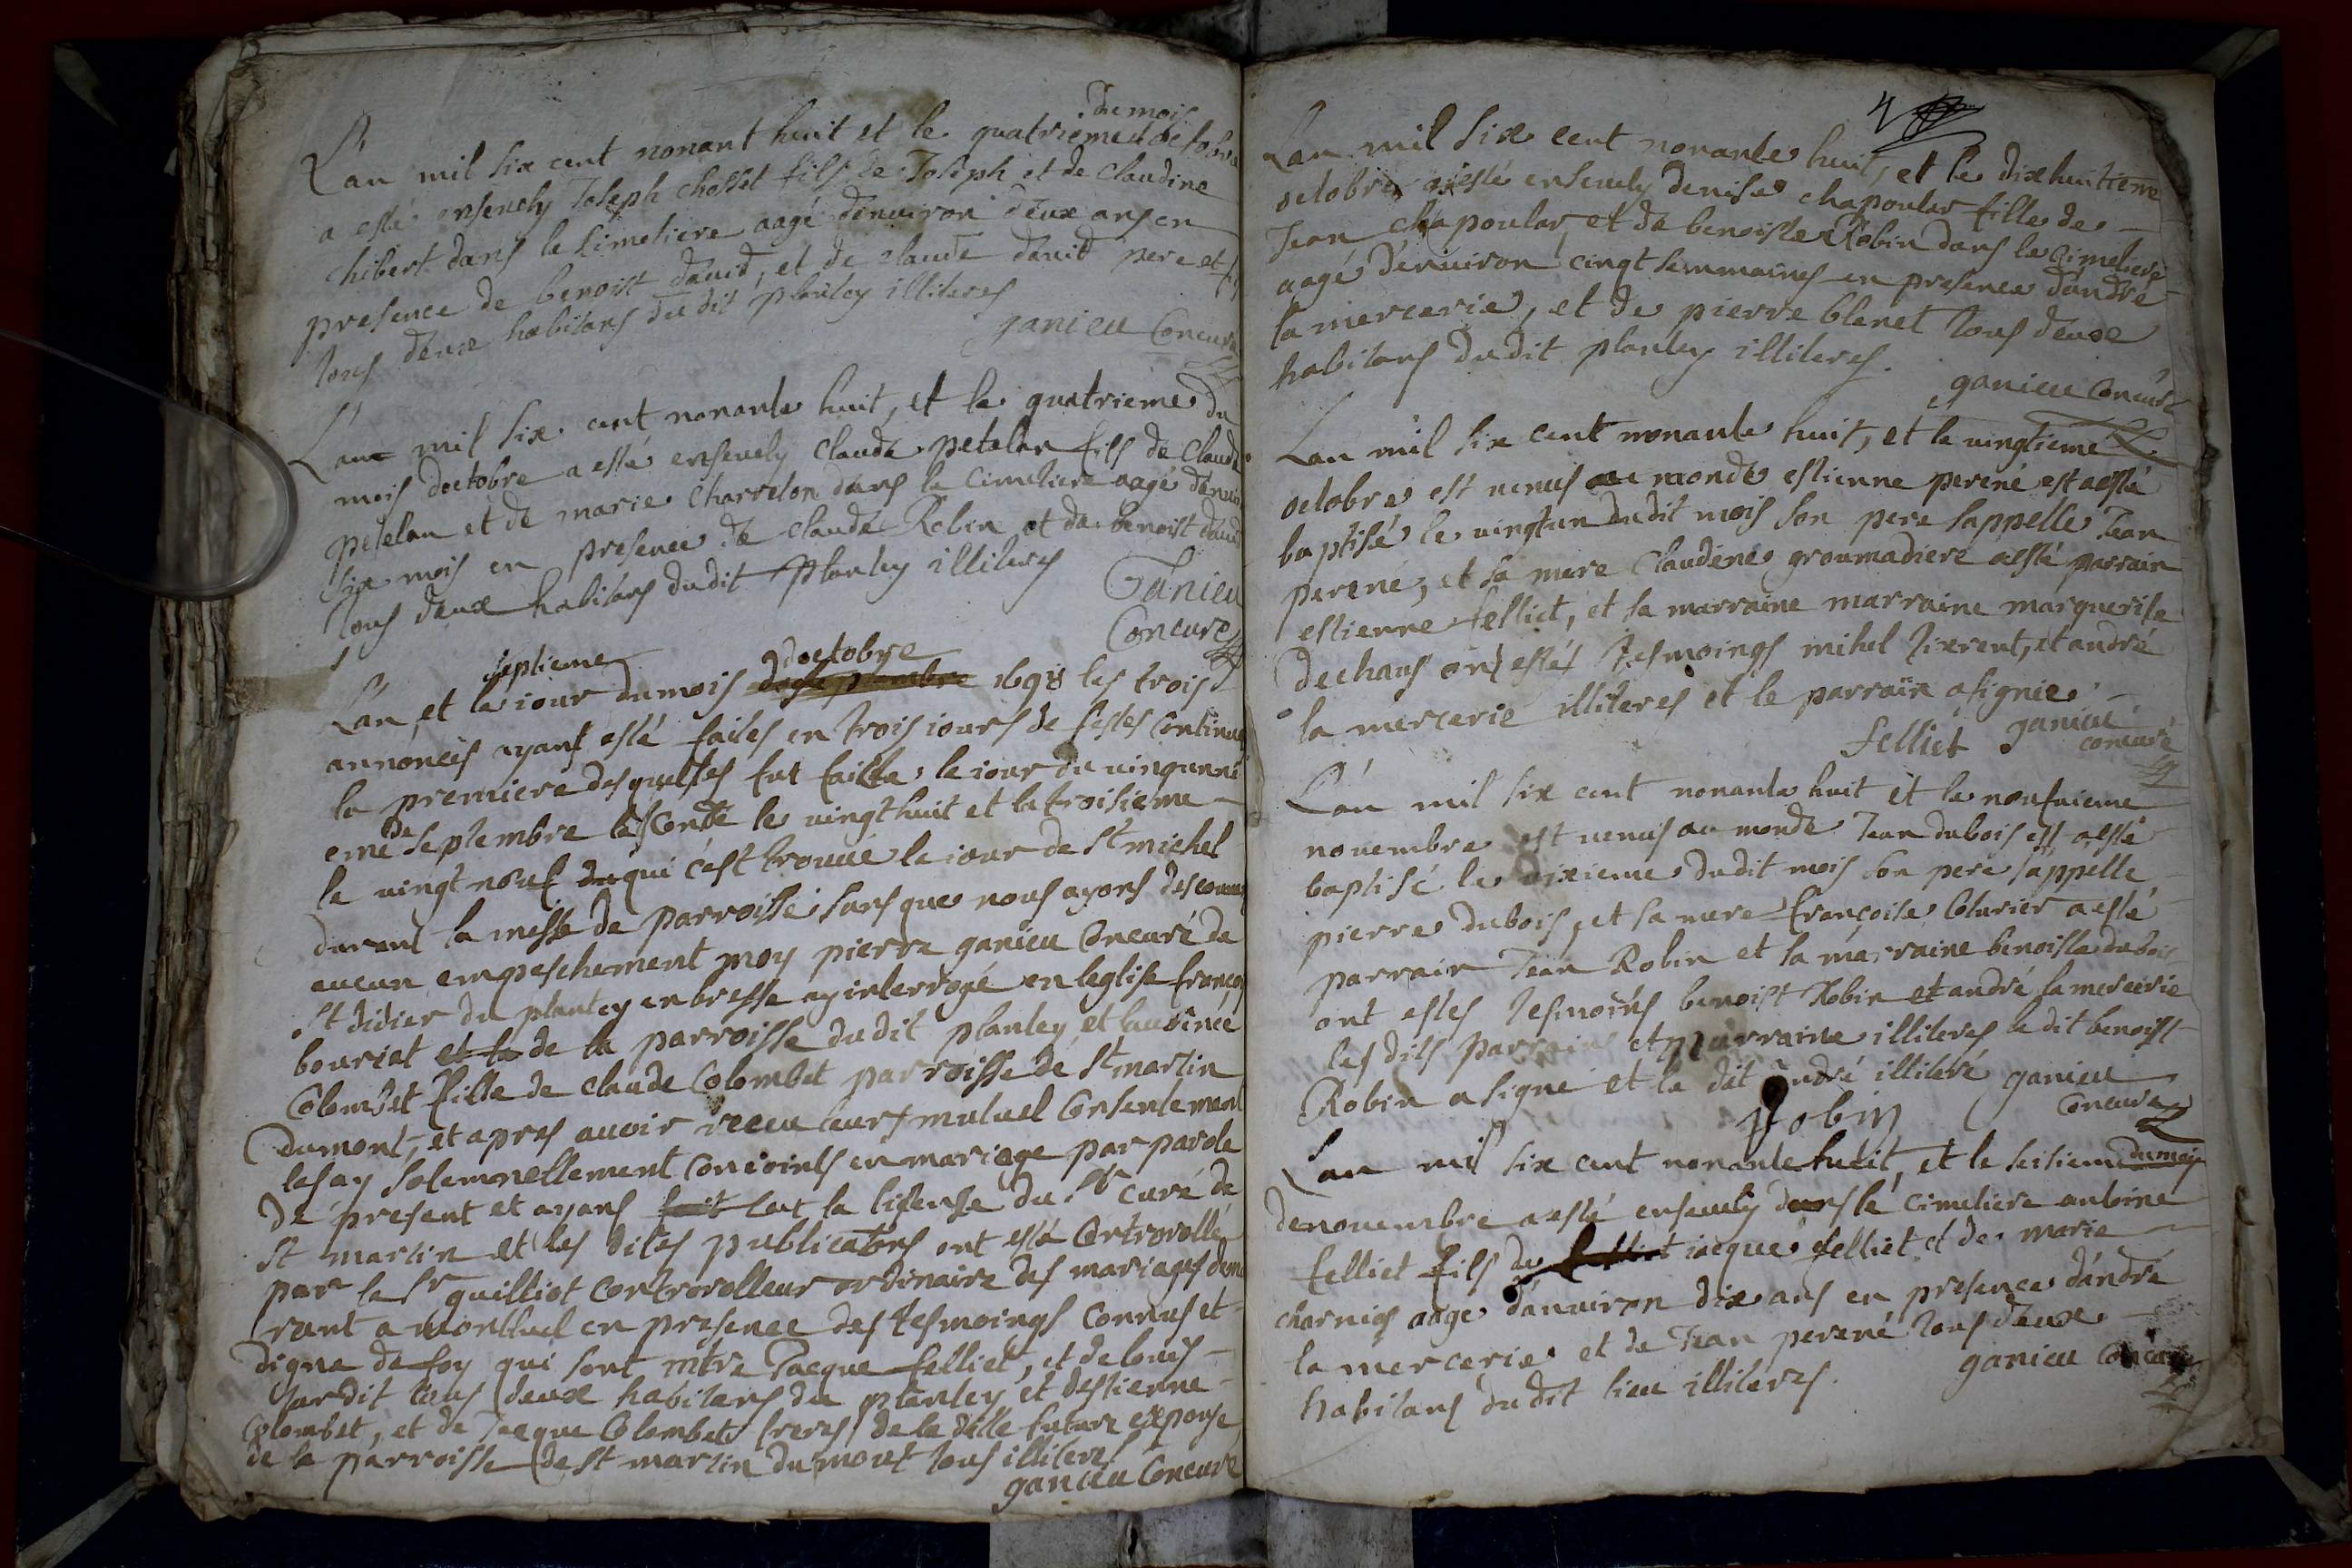 du mois
L'an mil six cent nonant huit et le quatrieme doctobre
a esté ensevely Joseph chosset fils de Joseph et de Claudine
chibert dans le simetiere aagé denuiron deux ans en
presence de benoist dauid, et de claude dauid pere et fils
tous deux habitans du dit plantey illiteres
ganieu Concuré
L'an mil six cent nonante huit, et le quatrieme du
mois doctobre a esté enseuely Claude petelan fils de Claude
petelan et de marie Charreton dans le Cimetiere aagé denuiron
six mois en presence de claude Robin et de benoist dauid
tous deux habitans dudit Plantey illiteres
Ganieu
Concuré
septieme doctobre
L'an et le iour du mois de septembre 1698 les trois
annonces ayant esté faites en trois iours de festes Continues
la premiere desquelles fut faitte le iour du uingunni
eme de septembre la seconde le uingthuit et la troisieme
le uingt nouf du qui c'est trouué le iour de st michel
durant la messe de parroisse sans que nous ayons descouuert
aucun empeschement moy pierre ganieu Concuré de
st didier du plantey en bresse ay interrogé en leglise françois
bouriat et la de la parroisse dudit plantey et
Colombet fille de claude Colombet parroisse de st martin
dumont, et apres auoir receu leur mutuel Consentement
les ay solemnellement conioints en mariage par parole
de present et ayans fait la lisense du sr curé de
st martin et les dites publications ont esté Controrollé
par le sr guilliot controrolleur ordinaire des mariages deme
rant a montluel en presence des tesmoings connus et
digne de foy qui sont mtre Jacque felliet, et de louis
Jardit tous deux habitans du plantey et destienne
Colombet, et de Jacque Colombet freres de la ditte future espouse
de la parroisse de st martin dumont tous illiteres
ganieu Concuré
Lan mil six cent nonante huit, et le dixhuitieme
octobre a esté enseuely denise chapoular fille de
Jean chapoular et de benoiste Robin dans le Cimetiere
aagé denuiron cinqt semmaines en presence dandré
la mercerie, et de pierre blenet tous deux
habitans dudit plantey illiteres.
ganieu Concuré
Lan mil six cent nonante huit, et le uingtieme
octobre est uenus au monde estienne perené est a esté
baptisé le uingt un dudit mois son pere sappelle Jean
perené, et sa mere Claudine groumadiere a esté parrain
estienne felliet, et la marraine marraine marguerite
dechans ont estés tesmoings mihel tixrent, et andré
la mercerie illiteres et le parrain a signie
felliet ganieu
concuré
L'an mil six cent nonante huit et le noufuieme
nouembre est uenus au monde Jean dubois est a esté
baptisé le dixieme dudit mois son pere sappelle
pierre dubois, et sa mere françoise Coturier a esté
parrain Jean Robin et la marraine benoiste dubois
ont estés tesmoins benoist Robin et andré la mercerie
les dits parrains et marraine illiteres le dit benoist
Robin a signe et le dit andré illiteré ganieu
Robin Concuré
Lan mil six cent nonante huit, et le seisieme du mois
de nouembre a esté enseuely dans le cimetiere antoine
felliet fils de felliet iacque felliet et de marie
charnies aagé danuiron dix ans en presence dandré
la mercerie et de Jean perené tous deux
habitans dudit lieu illiteres. ganieu Concuré